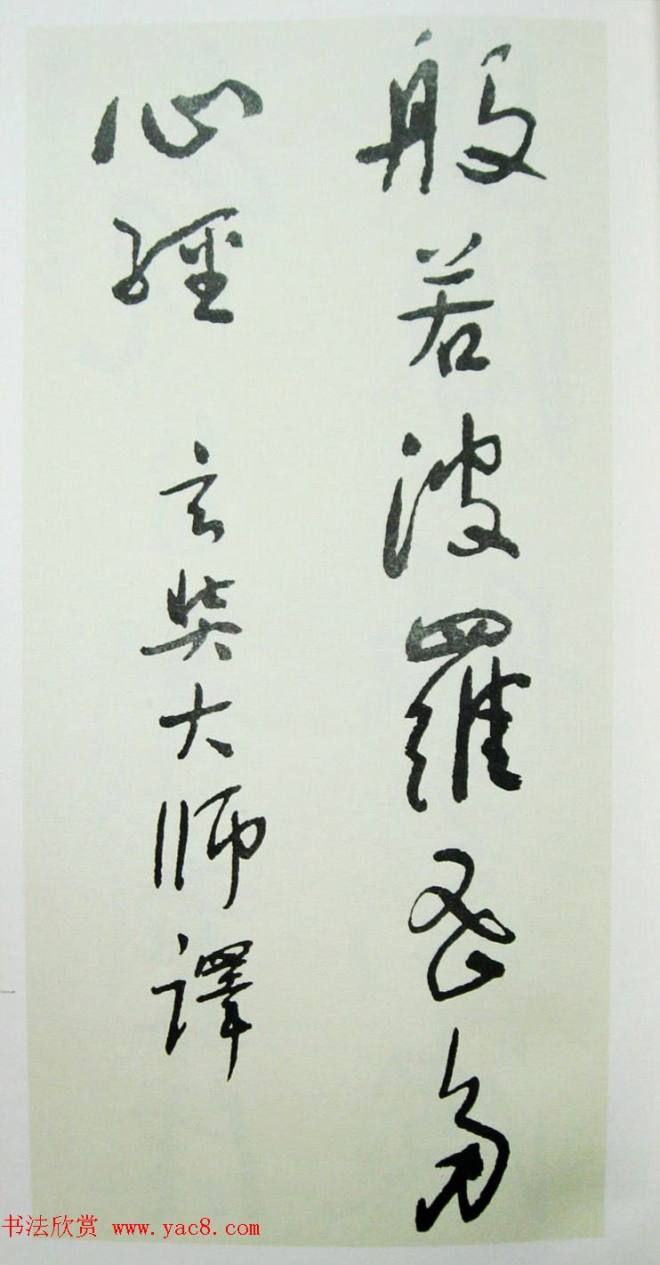 般若波羅蜜多
心經 玄奘大师譯
书法欣赏 www.yac8.com